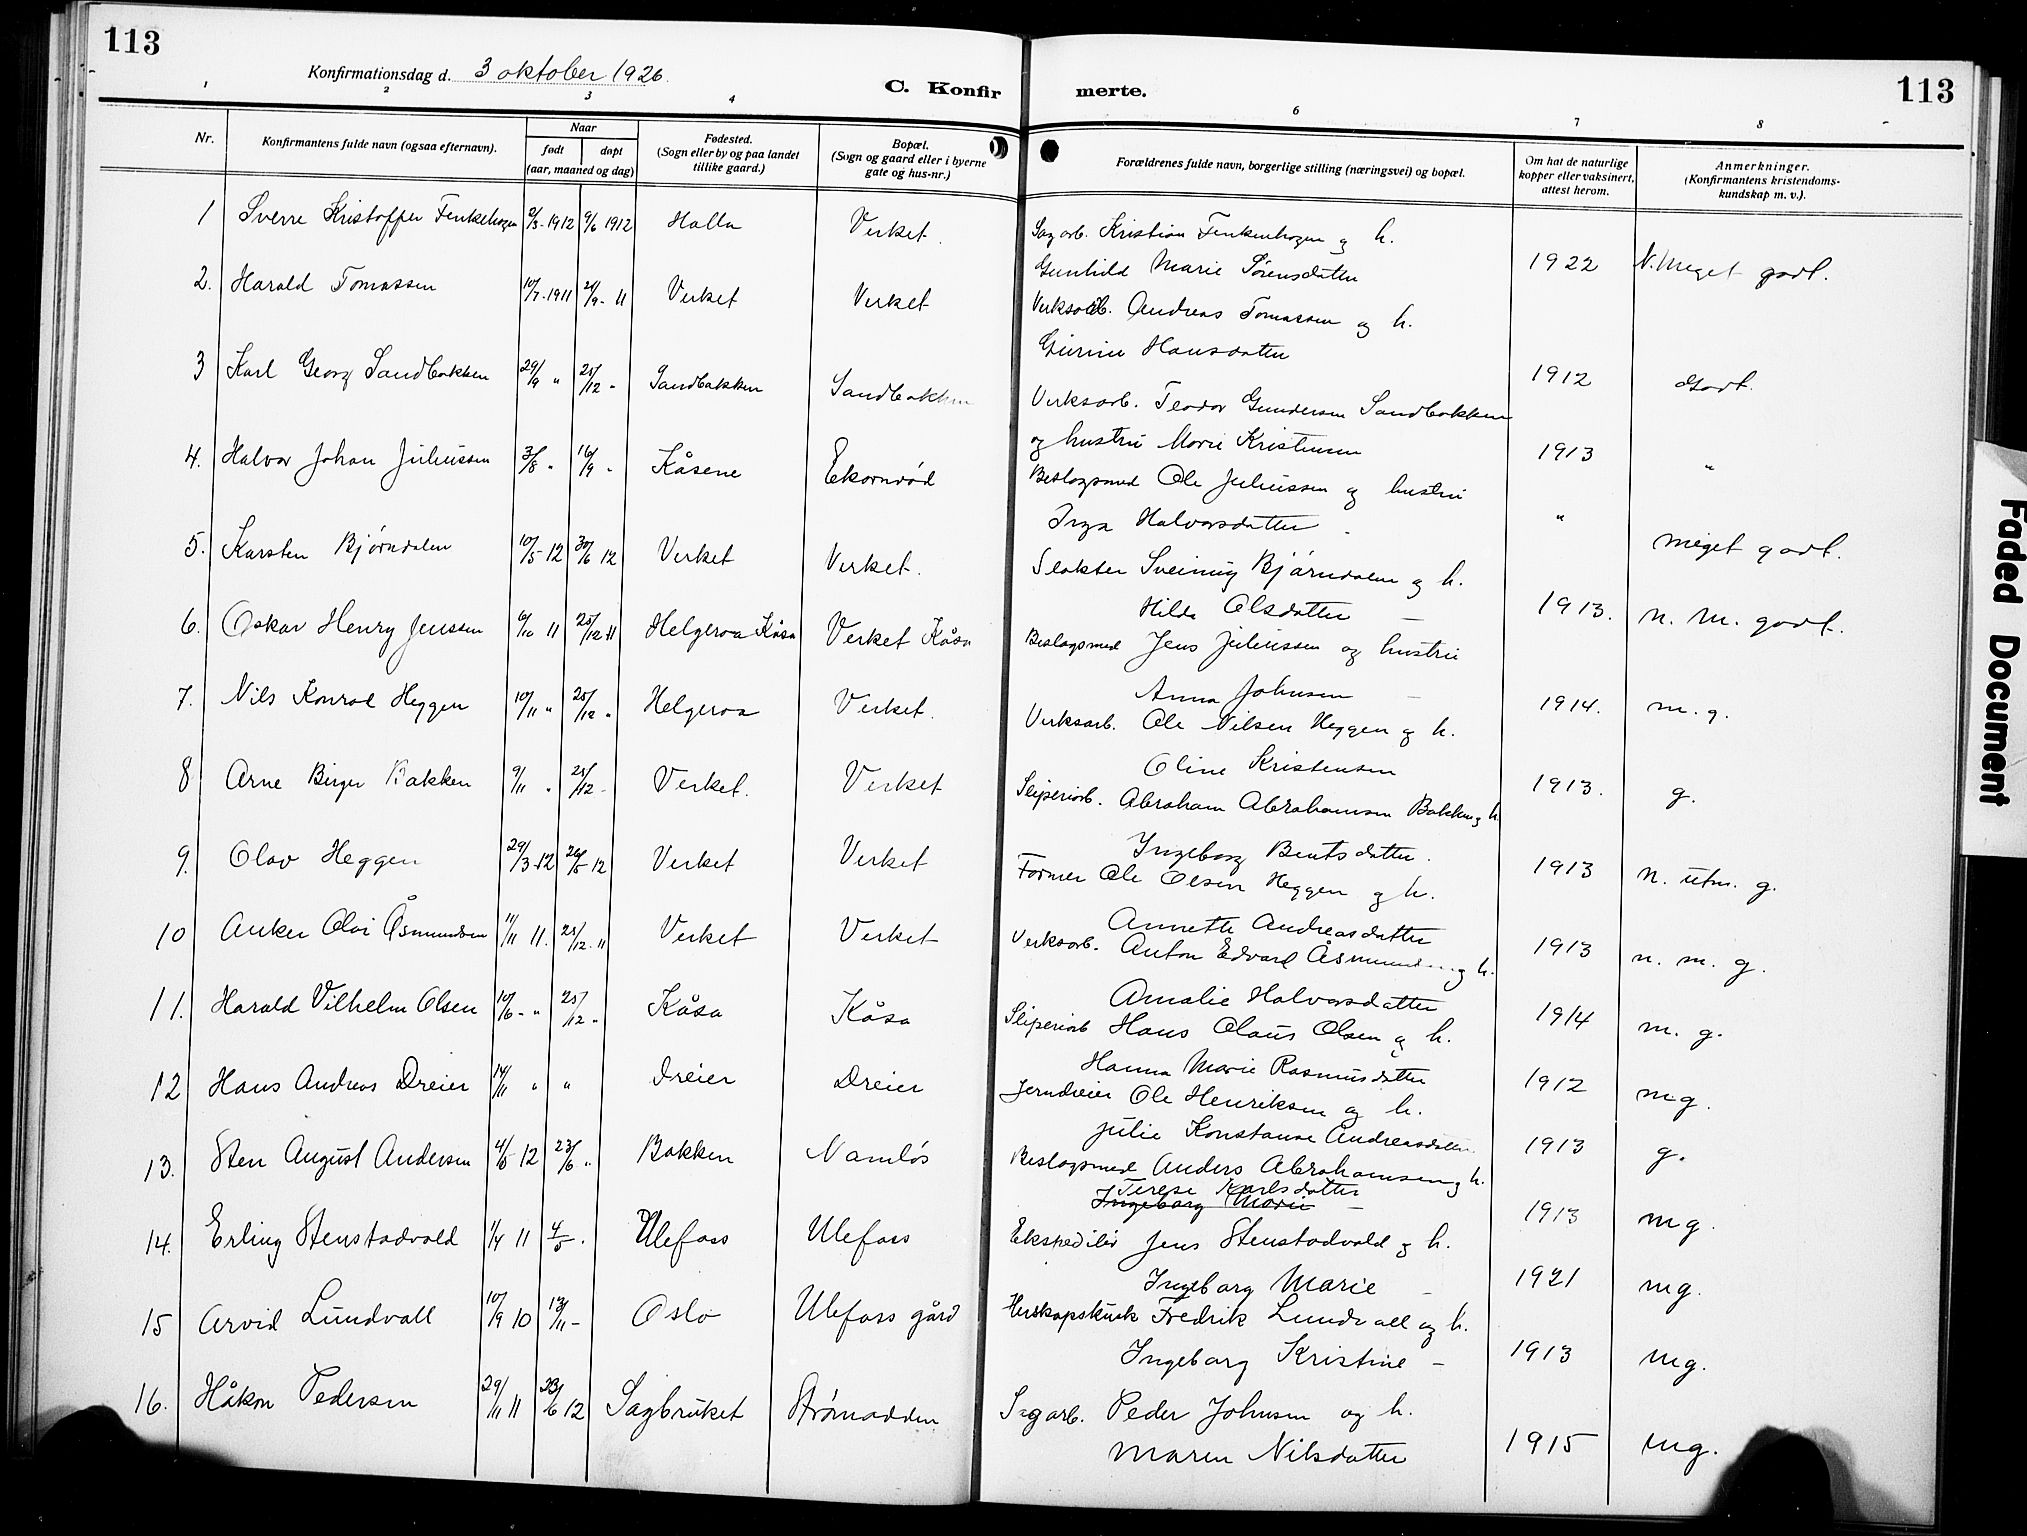 113
Konfirmationsdag d. 3 oktober 1926.
C. Konfirmerte.
113
1 2 3 4 5 6 7 8
Nr.
Konfirmantens fulde navn (ogsaa efternavn).
Naar
født døpt
(aar, maaned og dag)
Fødested.
(Sogn eller by og paa landet
tillike gaard.)
Bopæl.
(Sogn og gaard eller i byerne
gate og hus-nr.)
Forældrenes fulde navn, borgerlige stilling (næringsvei) og bopæl.
Om hat de naturlige
kopper eller vaksinert,
attest herom.
Anmerkninger.
(Konfirmantens kristendoms-
kundskap m. v.).
1 Sverre Kristoffer Finkehagen 1912 9/6 1912 Holla Verket. Sagarb. Kristian Finkenhagen og h.
Gunhild Marie Sørensdatter 1922 N. Meget godt.
2. Harald Tomassen 10/7-1911 24/9- 11 Verket Verket Verksarb. Andreas Tomassen og h.
Gurine Hansdatter 1912 Godt.
3 Karl Georg Sandbakken 29/9 " 25/12 " Sandbakken Sandbakken Verksarb. Teodor Gundersen Sandbakken
og hustru Marie Kristensen 1913 "
4. Halvor Johan Juliussen 3/8 " 16/9 " Kåsene Ekornrød Beslagsmed Ole Juliussen og hustru
Inga Halvorsdatter - " Meget godt.
5. Karsten Bjørndalen 10/5-12 30/6 12 Verket Verket. Slakter Sveinung Bjørndalen og h.
Hilda Olsdatter - 1913. n. m. godt.
6. Oskar Henry Jenssen 6/10 11 25/12 11 Helgeroa Kåsa Verket Kåsa Beslagsmed Jens Juliussen og hustru
Anna Johnsen - 1914. m. g.
7. Nils Konrad Heggen 10/11 " 25/12 " Helgeroa Verket. Verksarb. Ole Nilsen Heggen og h.
Oline Kristensen 1913. g.
8 Arne Birger Bakken 9/11 " 25/12 - Verket. Verket Sliperiarb. Abraham Abrahamsen Bakken og h.
Ingeborg Bentsdatter. 1913 n. utm. g.
9. Olav Heggen 29/3-12 26/5 12 Verket Verket Former Ole Olsen Heggen og h.
Annette Andreasdatter 1913 n. m. g.
10 Anker Olai Åsmundsen 11/11 11. 25/12- 11 Verket Verket Verksarb. Anton Edvard Åsmundsen og h.
Amalie Halvorsdatter 1914 m. g.
11. Harald Vilhelm Olsen 10/6- " 25/12 " Kåsa Kåsa Sliperiarb Hans Olaus Olsen og h.
Hanna Marie Rasmusdatter 1912 mg.
12 Hans Andreas Dreier 14/11 " " Dreier Dreier Jerndreier Ole Henriksen og h.
Julie Konstanse Andreasdatter. 1913 g.
13. Sten August Andersen 4/5 12 23/6 " Bakken Namløs Beslagsmed Anders Abrahamsen og h.
Terese Karlsdatter
Ingeborg Marie - 1913 mg.
14. Erling Stenstadvold 1/4 11 4/5 - Ulefoss Ulefoss Ekspeditør Jens Stenstadvold og h.
Ingeborg Marie - 1921 mg.
15 Arvid Lundvall 10/9 10 13/11 - Oslo Ulefoss gård Herskapskusk Fredrik Lundvall og h.
Ingeborg Kristine - 1913 mg.
16. Håkon Pedersen 29/11 11 23/6 12 Sagbruket Strømodden Sagarb. Peder Johnsen og h.
Maren Nilsdatter 1915 mg.
Faded Document